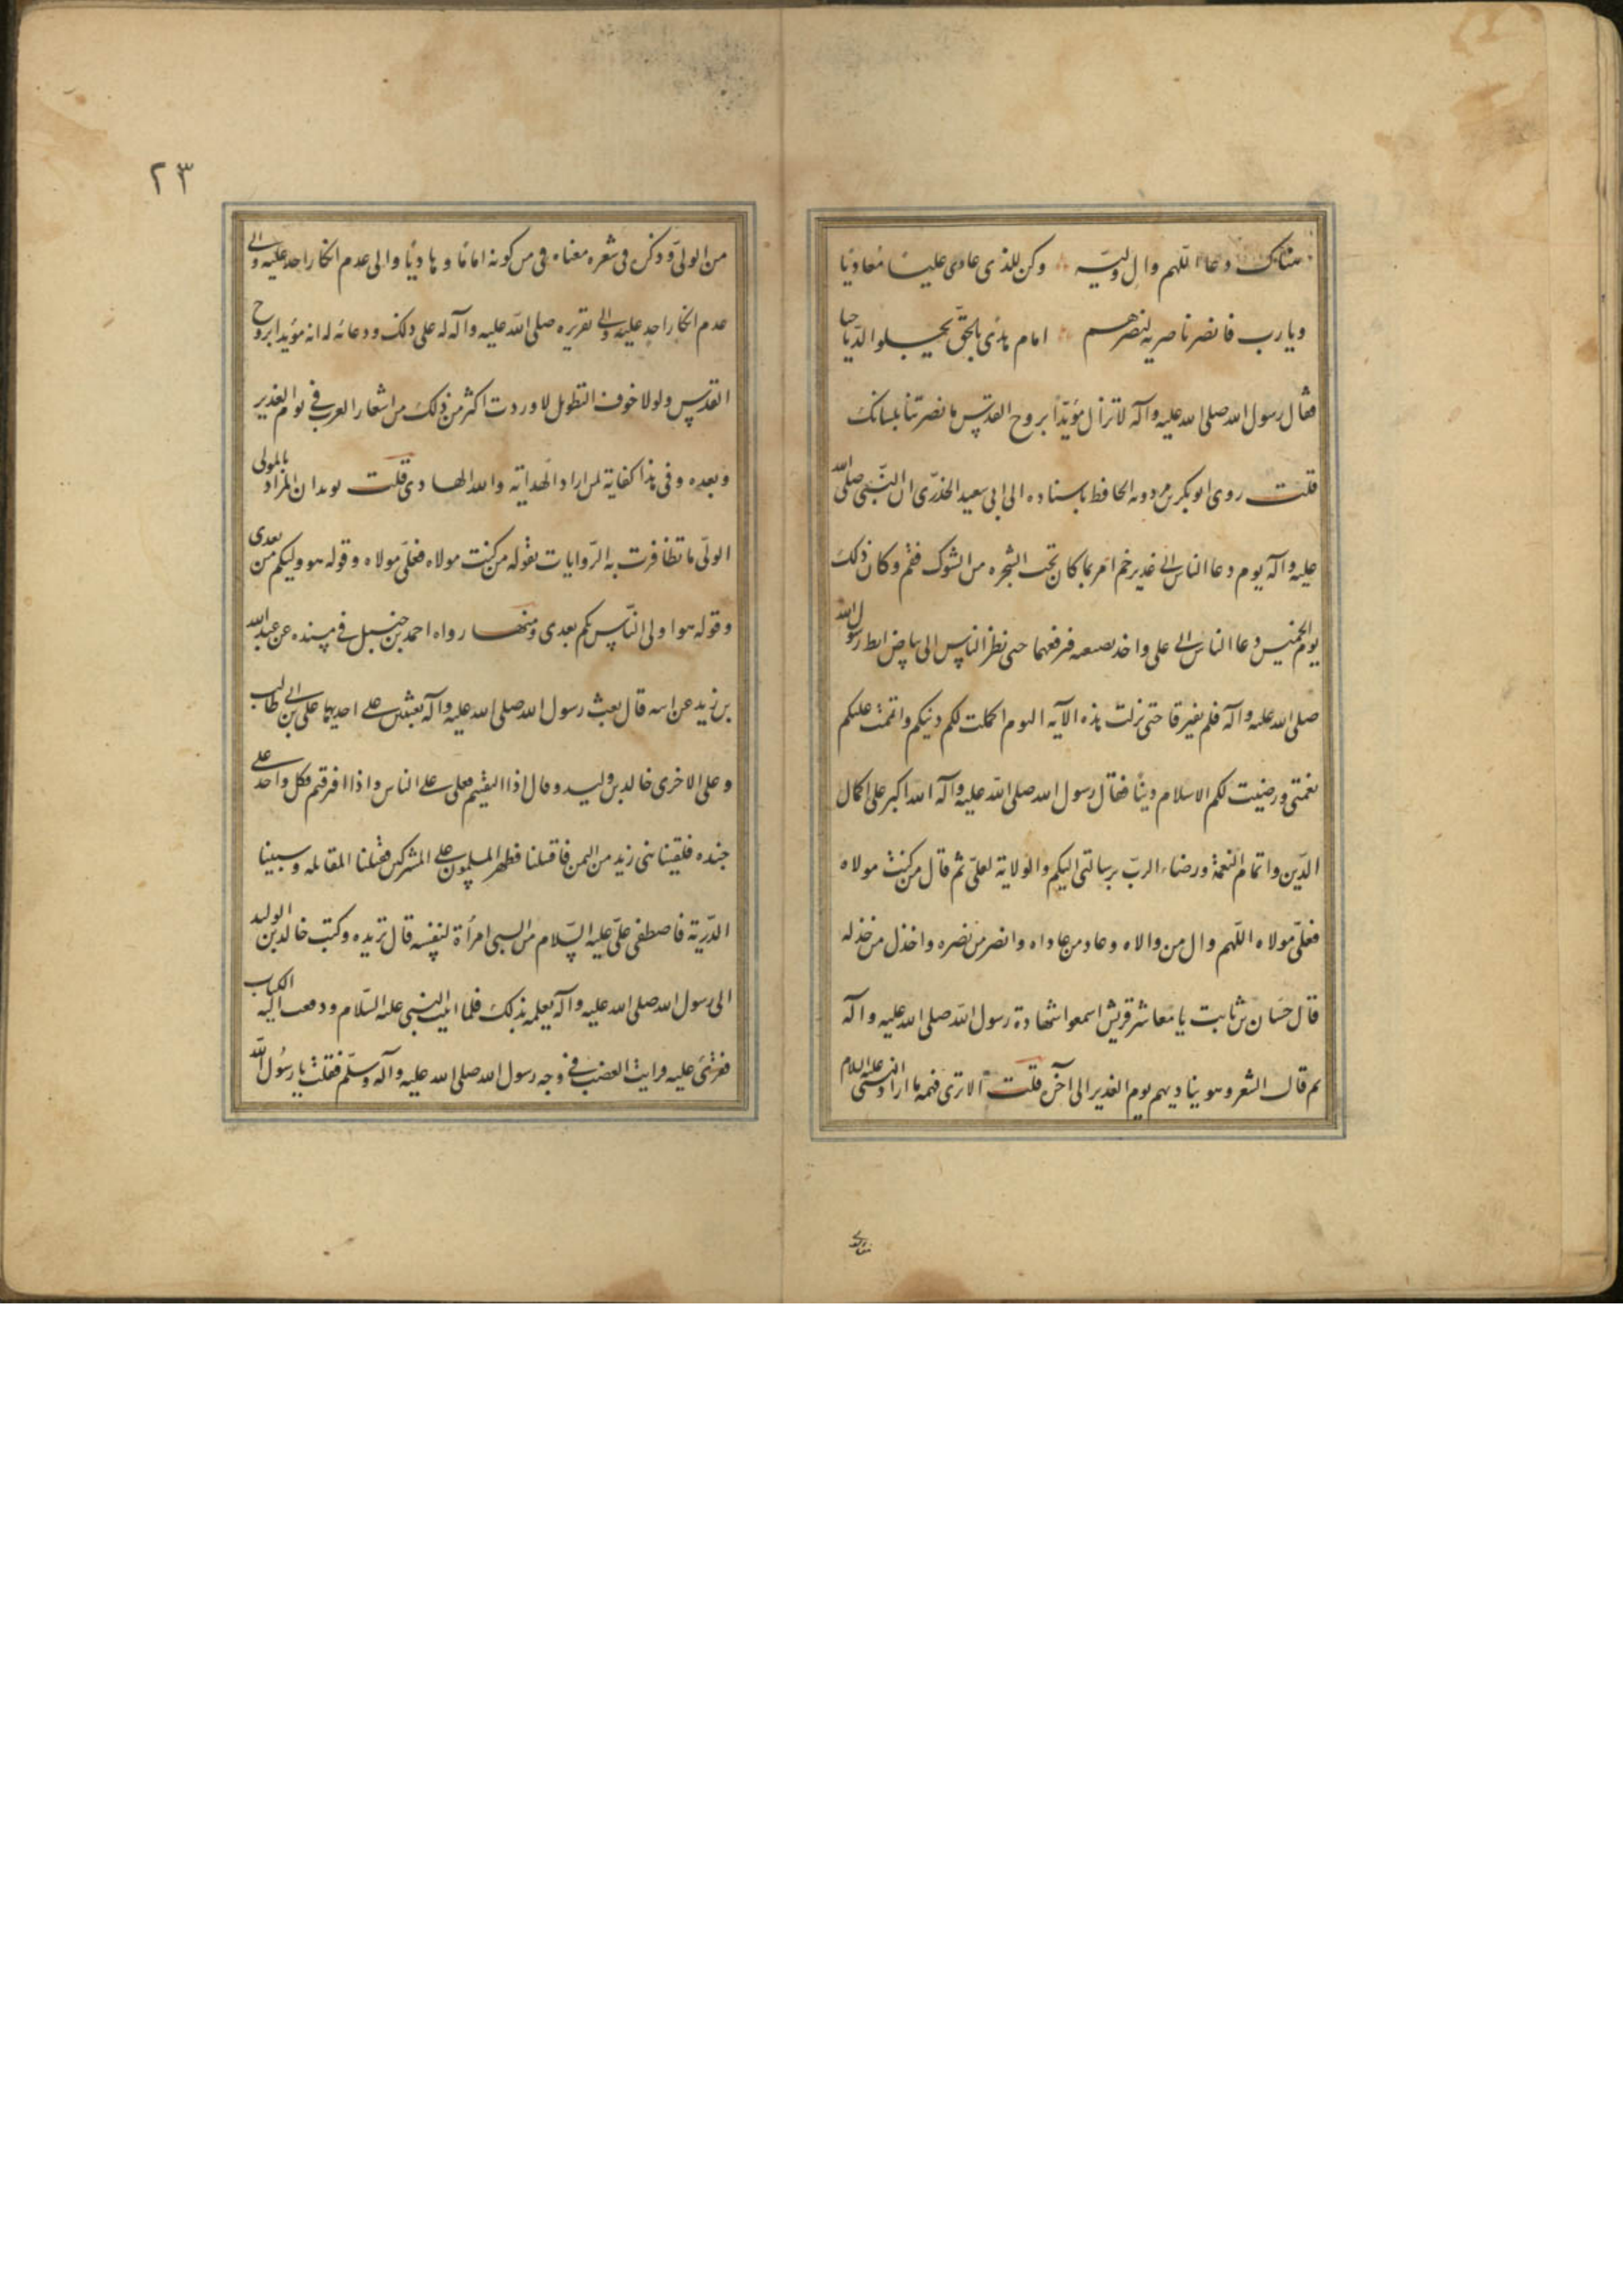 هناك دعا اللهم وال وليه وكن للذى عادى عليا معاديا
ويا رب فانصر ناصريه لنصرهم امام هدى بالحق يجلو الدياحيا
فقال رسول الله صلى الله عليه وآله لا تزال مؤيدا بروح القدس ما نصرتنا بلسانك
قلت روى ابو بكر بن مردويه الحافظ باسناده الى ابى سعيد الخدرى ان النبى صلى الله
عليه وآله يوم دعا الناس الى غدير خم امر بما كان تحت الشجره من الشوك فقم وكان ذلك
يوم الخميس دعا الناس الى على واخذ بضبعيه فرفعهما حتى نظر الناس الى بياض ابط رسول الله
صلى الله عليه وآله فلم يفترقا حتى نزلت هذه الآيه اليوم اكملت لكم دينكم واتممت عليكم
نعمتى ورضيت لكم الاسلام دينا فقال رسول الله صلى الله عليه وآله الله اكبر على اكمال
الدين واتمام النعمة ورضاء الرب برسالتى اليكم والولاية لعلى ثم قال من كنت مولاه
فعلى مولاه اللهم وال من والاه وعاد من عاداه وانصر من نصره واخذل من خذله
قال حسان بن ثابت يا معاشر قريش اسمعوا شهادة رسول الله صلى الله عليه وآله
ثم قال الشعر وهو يناديهم يوم الغدير الى آخره قلت الا ترى فهمه ما اراد النبى عليه السلام
٢٣
من الولى وذكره فى شعره معناه فى من كونه اماما وهاديا والى عدم انكار احد عليه والى
عدم انكار احد عليه والى تقريره صلى الله عليه وآله له على ذلك ودعائه له انه مؤيدا بروح
القدس ولولا خوف التطويل لاوردت اكثر من ذلك من اشعار العرب فى يوم الغدير
وبعده وفى هذا كفاية لمن اراد الهداية والله الهادى قلت يويد ان المراد بالمولى
الولى ما تظافرت به الروايات بقوله من كنت مولاه فعلى مولاه وقوله هو وليكم من بعدى
وقوله هو اولى الناس بكم بعدى ومنها رواه احمد بن حنبل فى مسنده عن عبد الله
بن زيد عن ابيه قال بعث رسول الله صلى الله عليه وآله بعثين على احديهما على بن ابى طالب
وعلى الاخرى خالد بن وليد وقال اذا التقيتم فعلى على الناس واذا افترقتم فكل واحد على
جنده فلقينا بنى زيد من اليمن فاقتتلنا فظهر المسلمون على المشركين فقتلنا المقاتله وسبينا
الذرية فاصطفى على عليه السلام من السبى امرأة لنفسه قال بريده وكتب خالد بن الوليد
الى رسول الله صلى الله عليه وآله يعلمه بذلك فلما اتيت النبى عليه السلام ودفعت اليه الكتاب
فقرئ عليه فرايت الغضب فى وجه رسول الله صلى الله عليه وآله وسلم فقلت يا رسول الله